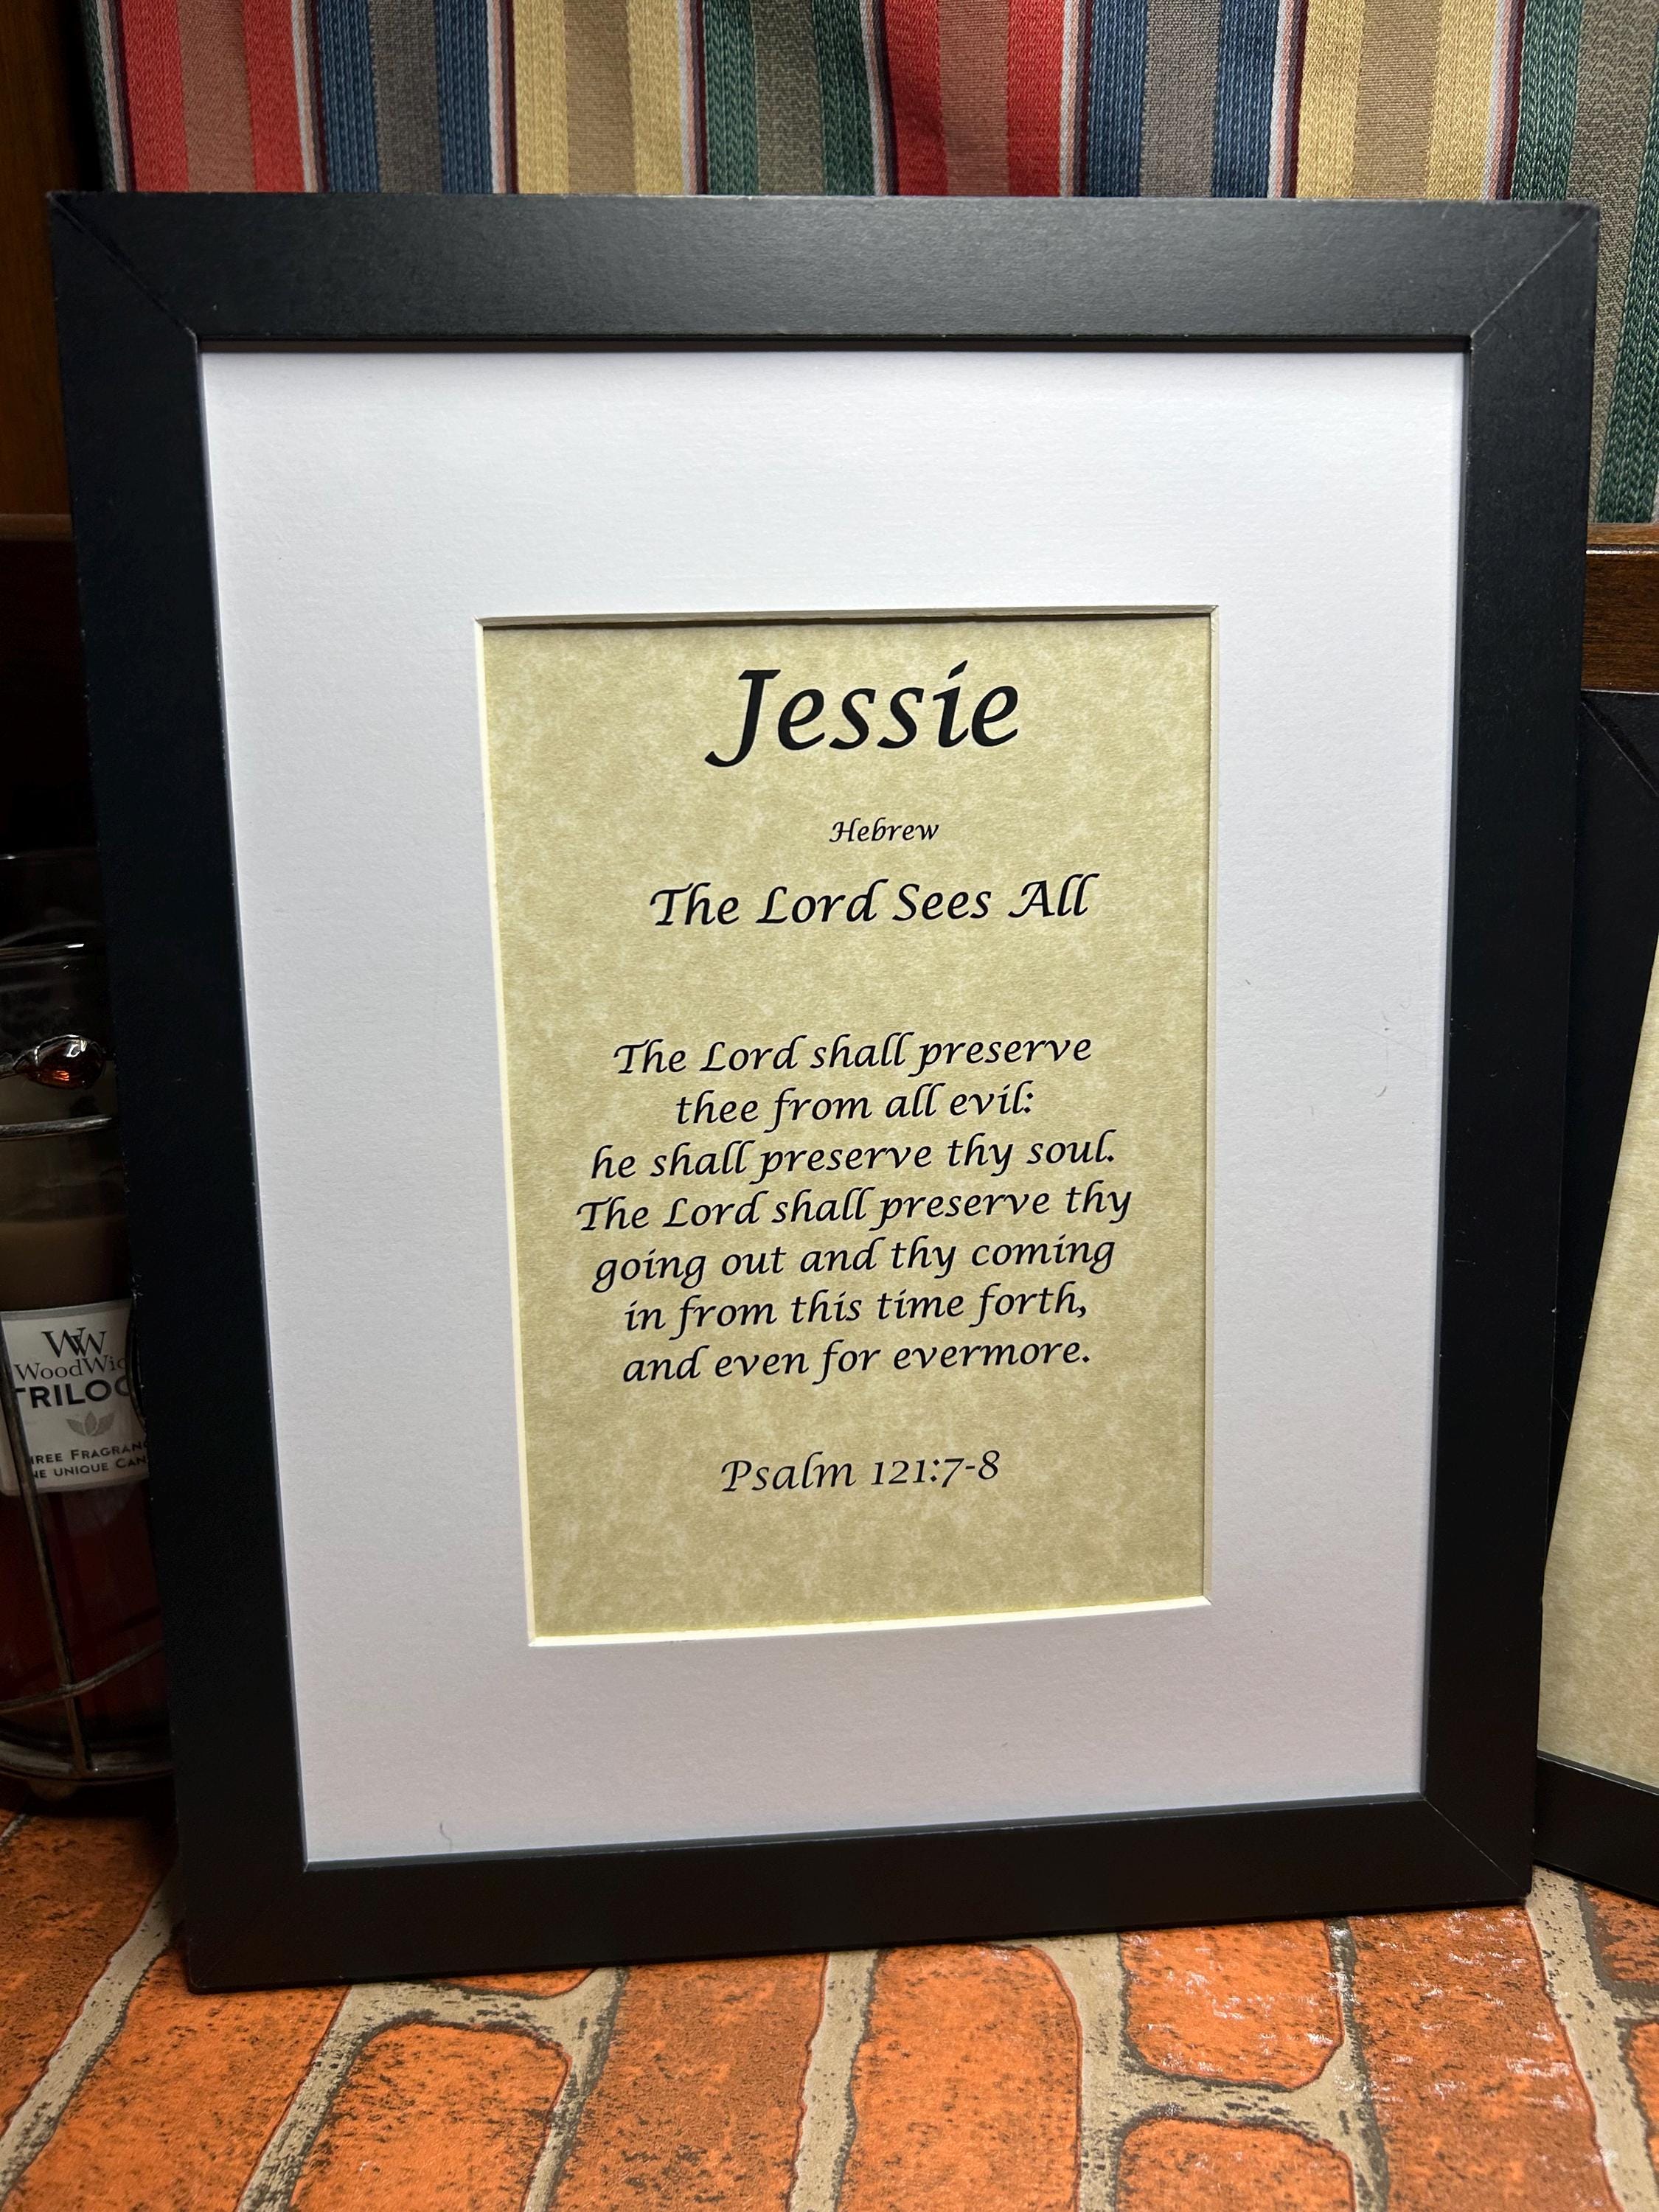 Jessie
Hebrew
The Lord Sees All
The Lord shall preserve
thee from all evil:
he shall preserve thy soul.
The Lord shall preserve thy
going out and thy coming
in from this time forth,
and even for evermore.
Psalm 121:7-8
WW